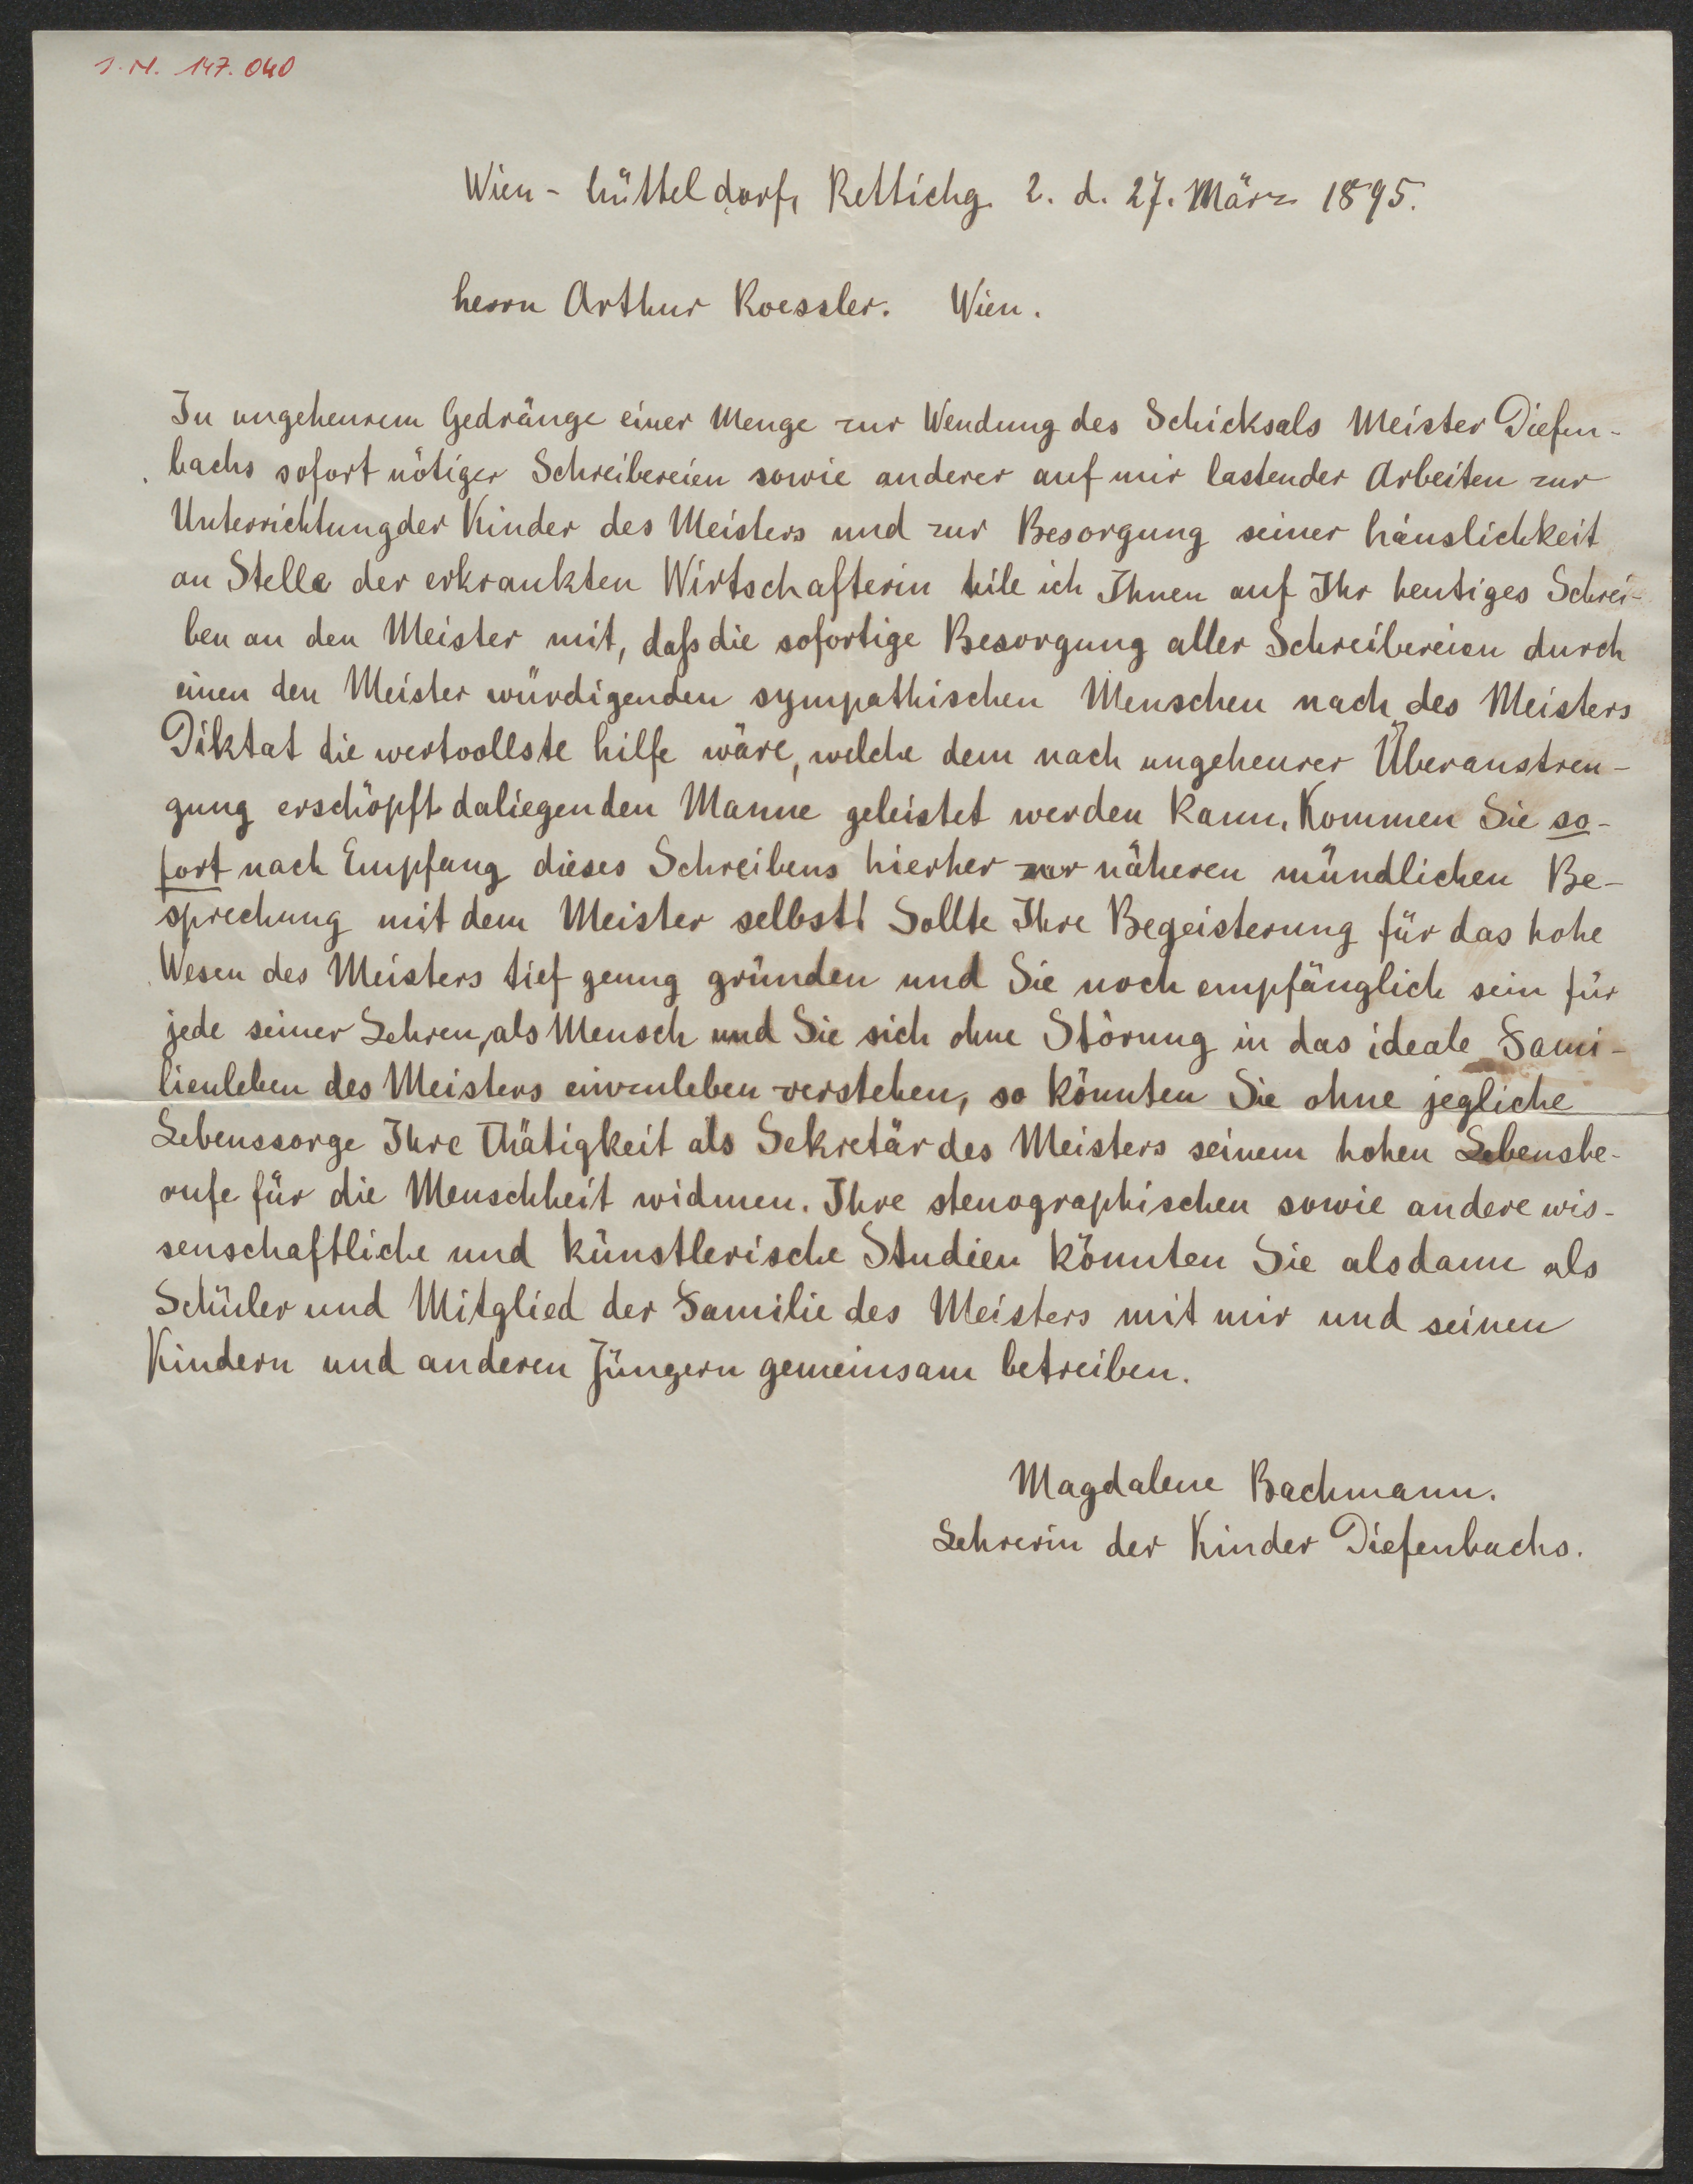 J. N. 147.040
Wien - Hütteldorf, Rettichg. 2. d. 27. März 1895.
Herrn Arthur Roessler. Wien.
In ungeheurem Gedränge einer Menge zur Wendung des Schicksals Meister Diefen-
bachs sofort nötiger Schreibereien sowie anderer auf mir lastender Arbeiten zur
Unterrichtung der Kinder des Meisters und zur Besorgung seiner Häuslichkeit
an Stelle der erkrankten Wirtschafterin teile ich Ihnen auf Ihr heutiges Schrei-
ben an den Meister mit, daß die sofortige Besorgung aller Schreibereien durch
einen den Meister würdigenden sympathischen Menschen nach des Meisters
Diktat die wertvollste Hilfe wäre, welche dem nach ungeheurer Überanstren-
gung erschöpft daliegenden Manne geleistet werden kann. Kommen Sie so-
fort nach Empfang dieses Schreibens hierher zur näheren mündlichen Be-
sprechung mit dem Meister selbst! Sollte Ihre Begeisterung für das hohe
Wesen des Meisters tief genug gründen und Sie noch empfänglich sein für
jede seiner Lehren, als Mensch und Sie sich ohne Störung in das ideale Fami-
lienleben des Meisters einzuleben verstehen, so könnten Sie ohne jegliche
Lebenssorge Ihre Thätigkeit als Sekretär des Meisters seinem hohen Lebensbe-
rufe für die Menschheit widmen. Ihre stenographischen sowie andere wis-
senschaftliche und künstlerische Studien könnten Sie alsdann als
Schüler und Mitglied der Familie des Meisters mit mir und seinen
Kindern und anderen Jüngern gemeinsam betreiben.
Magdalene Bachmann.
Lehrerin der Kinder Diefenbachs.